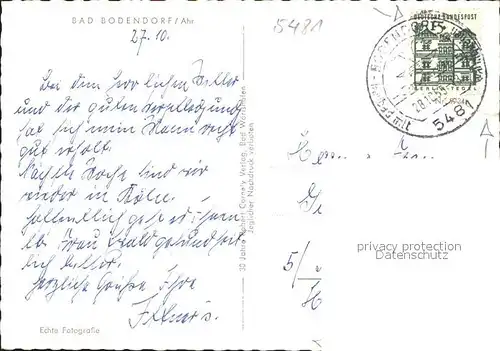 BAD BODENDORF/Ahr
27.10.
5481
Bei dem herrlichen Wetter
und der guten Verpflegung
hat sich mein Mann recht
gut erholt.
Nächste Woche sind wir
wieder in Köln.
Hoffentlich geht es Ihnen
lb. Frau Wald gesundheit-
lich besser.
Herzliche Grüße Ihre
Echte Fotografie
30 Jahre Verlag, Bad
Jeglicher Nachdruck verboten
DEUTSCHE BUNDESPOST
BERLIN-TEGEL
BODENDORF
5481
Herrn u. Frau
5/
H
privacy protection
Datenschutz